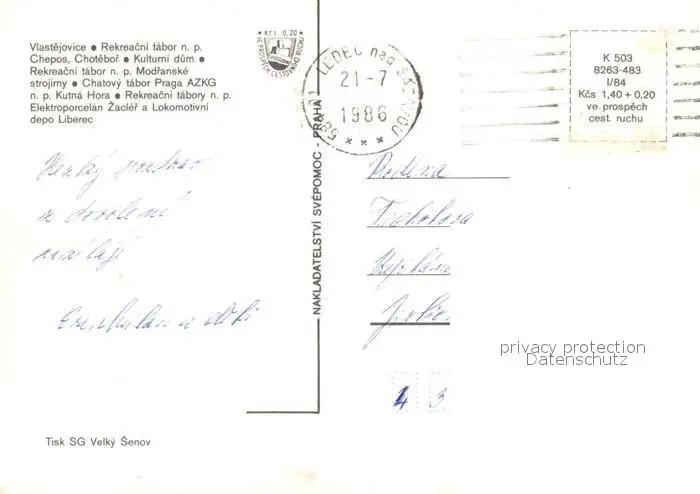 Vlastějovice ● Rekreační tábor n. p.
Chepos, Chotěboř ● Kulturní dům ●
Rekreační tábor n. p. Modřanské
strojírny ● Chatový tábor Praha AZKG
n. p. Kutná Hora ● Rekreační tábory n. p.
Elektroporcelán Žacléř a Lokomotivní
depo Liberec
Kčs 0,20
VE PROSPĚCH CESTOVNÍHO RUCHU
LEDEČ nad SÁZAVOU
21-7
1986
K 503
8263-483
I/84
Kčs 1,40 + 0,20
ve prospěch
cest. ruchu
NAKLADATELSTVÍ SVÉPOMOC - PRAHA
Hezký pozdrav
z dovolené
zasílají
a děti
Rodina
privacy protection
Datenschutz
4 3
Tisk SG Velký Šenov